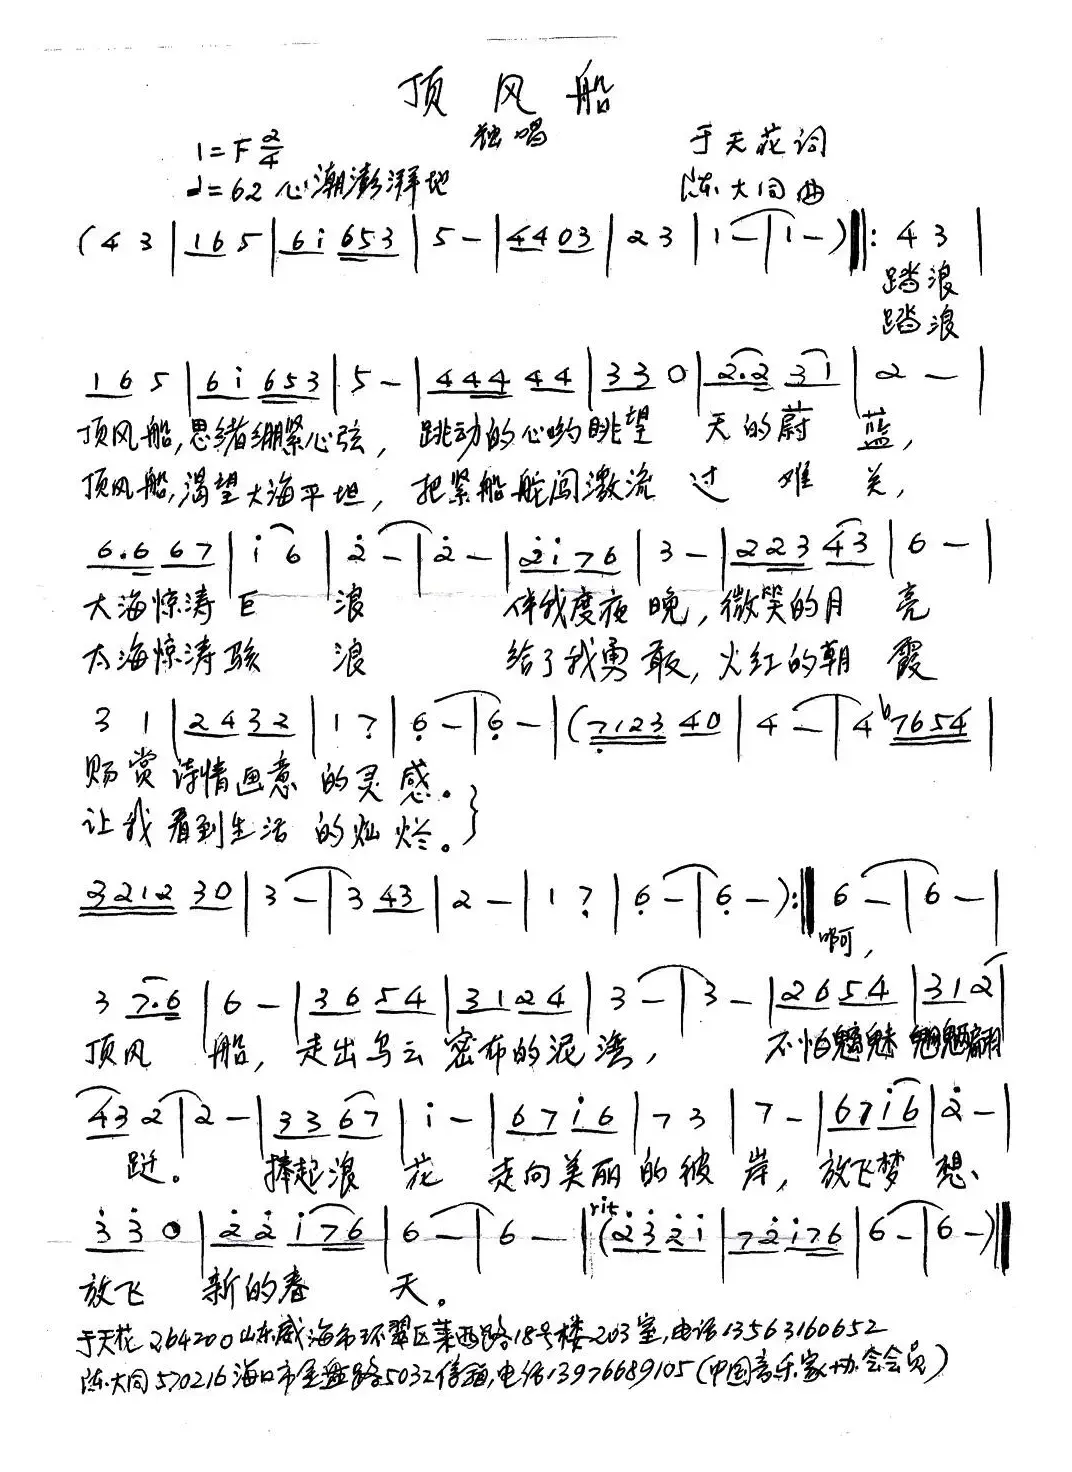 顶风船
独唱
1=F 2/4
于天花词
♩=62 心潮澎湃地
陈大同曲
(4 3 | 1 6 5 | 6 i 6 5 3 | 5 – | 4 4 0 3 | 2 3 | 1 – | 1 – ) ‖: 4 3 |
踏浪
踏浪
1 6 5 | 6 i 6 5 3 | 5 – | 4 4 4 4 4 | 3 3 0 | 2. 2 3 1 | 2 – |
顶风船,思绪绷紧心弦,跳动的心哟眺望 天的蔚 蓝,
顶风船,渴望大海平坦,把紧船舵闯激流 过 难 关,
6. 6 6 7 | i 6 | 2̇ – | 2̇ – | 2̇ i 7 6 | 3 – | 2 2 3 4 3 | 6 – |
大海惊涛 巨 浪 伴我度夜 晚,微笑的月 亮
大海惊涛 骇 浪 给了我勇 敢,火红的朝 霞
3 1 | 2 4 3 2 | 1 7̣ | 6̣ – | 6̣ – | (7̣ 1 2 3 4 0 | 4 – | 4 ♭7 6 5 4 |
赐 赏 诗情画意 的 灵 感。
让 我 看到生活 的 灿 烂。}
3 2 1 2 3 0 | 3 – | 3 4 3 | 2 – | 1 7̣ | 6̣ – | 6̣ – ) :‖ 6 – | 6 – |
啊,
3 7. 6 | 6 – | 3 6 5 4 | 3 1 2 4 | 3 – | 3 – | 2 6 5 4 | 3 1 2 |
顶风 船, 走出乌云 密布的泥 湾, 不怕魑魅
4 3 2 | 2 – | 3 3 6 7 | i – | 6 7 i 6 | 7 3 | 7 – | 6 7 i 6 | 2̇ – |
跹。 捧起浪 花 走向美丽 的 彼 岸, 放飞梦 想、
3̇ 3̇ 0 | 2̇ 2̇ i 7 6 | 6 – | 6 – | rit (2̇ 3̇ 2̇ i | 7 2̇ i 7 6 | 6 – | 6 – ) ‖
放飞 新的春 天。
于天花 264200山东威海市环翠区莱西路18号楼203室,电话13563160652
陈大同570216海口市金盘路5032信箱,电话13976689105(中国音乐家协会会员)